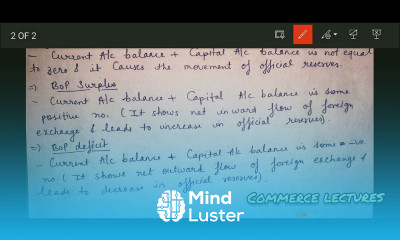 2 OF 2
- Current A/c balance + Capital A/c balance is not equal
to zero & it causes the movement of official reserves.
=) BOP Surplus
- Current A/c balance + Capital A/c balance is some
positive no. (It shows net inward flow of foreign
exchange & leads to increase in official reserves).
=) BOP deficit
- Current A/c balance + Capital A/c balance is some -ve
no. (It shows net outward flow of foreign exchange &
leads to decrease in official reserves).
COMMERCE LECTURES
Mind
Luster